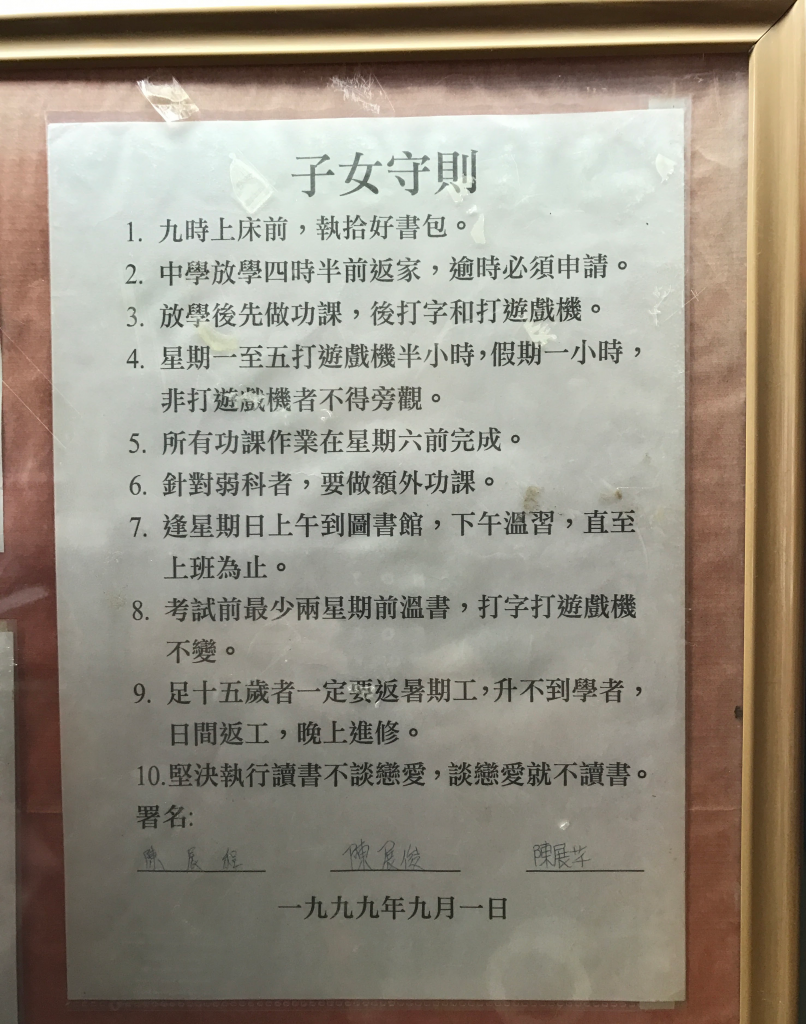 子女守則
1. 九時上床前，執拾好書包。
2. 中學放學四時半前返家，逾時必須申請。
3. 放學後先做功課，後打字和打遊戲機。
4. 星期一至五打遊戲機半小時，假期一小時，
非打遊戲機者不得旁觀。
5. 所有功課作業在星期六前完成。
6. 針對弱科者，要做額外功課。
7. 逢星期日上午到圖書館，下午溫習，直至
上班為止。
8. 考試前最少兩星期前溫書，打字打遊戲機
不變。
9. 足十五歲者一定要返暑期工，升不到學者，
日間返工，晚上進修。
10.堅決執行讀書不談戀愛，談戀愛就不讀書。
署名:
陳展 陳展俊 陳展
一九九九年九月一日